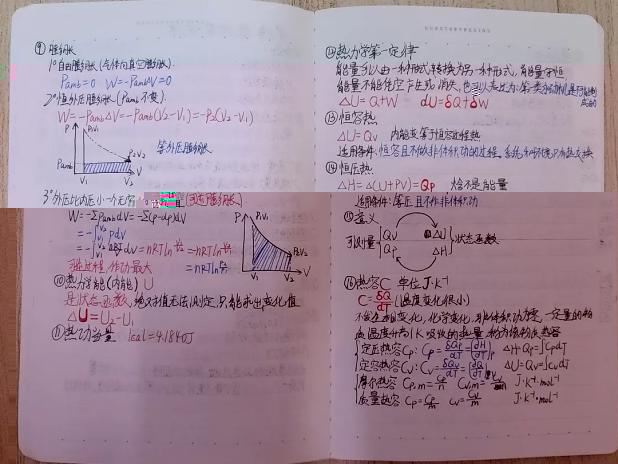 ⑨ 膨胀
1° 自由膨胀 (气体向真空膨胀)
Pamb=0 W=-PambΔV=0
2° 恒外压膨胀 (Pamb不变)
W=-PambΔV=-Pamb(V₂-V₁)=-P₂(V₂-V₁)
P P₁V₁
等外压膨胀
Pamb P₂V₂
V₁ V₂ V
3° 外压比内压小一个无穷
W=-ΣPambdV=-Σ(P-dP)dV
=-∫PdV
=-∫nRT/V dV=nRTln V₁/V₂=nRTln P₂/P₁
可逆过程,作功最大
P P₁V₁
P₂V₂
V₁ V₂ V
⑩ 热力学能(内能) U
是状态函数,绝对值无法测定,只能求出变化值
ΔU=U₂-U₁
⑪ 热功当量 1cal=4.1840J
⑫ 热力学第一定律
能量可以由一种形式转换为另一种形式,能量守恒
能量不能凭空产生或消失,也可以表述为:第一类永动机是不可能制成的
ΔU=Q+W dU=δQ+δW
⑬ 恒容热
ΔU=Qv 内能变等于恒容过程热
适用条件:恒容且不做非体积功的过程,系统和环境只有热交换
⑭ 恒压热
ΔH=Δ(U+PV)=Qp 焓不是能量
适用条件:等压且不作非体积功
⑮ 意义
可测量 {Qv ΔU} 状态函数
Qp ΔH
⑯ 热容C 单位J·K⁻¹
C=δQ/dT (温度变化很小)
不发生相变化,化学变化,非体积功为零,一定量的物
质温度升高1K吸收的热量称为该物质热容
定压热容Cp: Cp=δQp/dT=(∂H/∂T)p ΔH=Qp=∫CpdT
定容热容Cv: Cv=δQv/dT=(∂U/∂T)v ΔU=Qv=∫CvdT
摩尔热容 Cp,m=Cp/n Cv,m=Cv/n J·K⁻¹·mol⁻¹
质量热容 Cp=Cp/m Cv=Cv/m J·K⁻¹·mol⁻¹